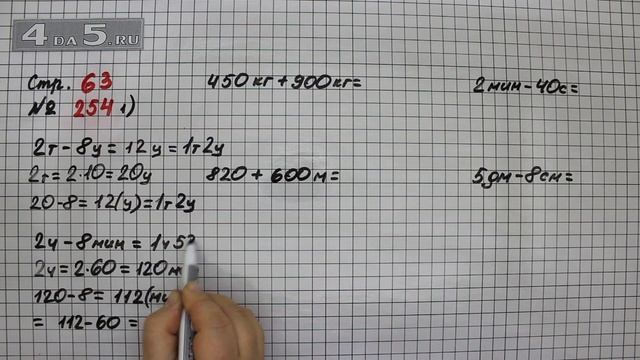 4 DA 5.RU
Стр. 63
№ 254 1)
2т - 8ц = 12 ц = 1т 2ц
2т = 2·10 = 20ц
20 - 8 = 12(ц) = 1т 2ц
2ч - 8мин = 1ч 52
2ч = 2·60 = 120 м
120 - 8 = 112(ми
= 112 - 60 =
450 кг + 900 кг =
820 + 600 м =
2 мин - 40с =
5 дм - 8 см =